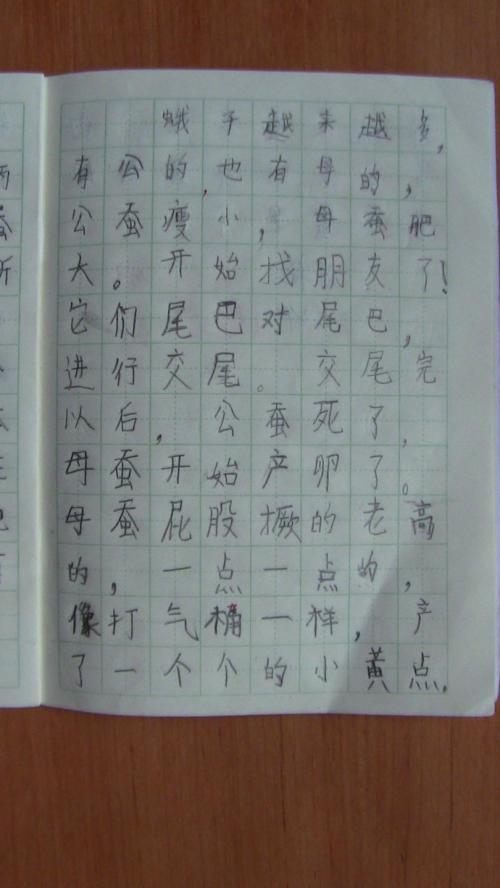 蛾子越来越多,
有公的,也有母的,
公蚕瘦小,母蚕肥
大。开始找朋友了!
它们尾巴对尾巴,
进行交尾。交尾完
以后,公蚕死了,
母蚕开始产卵了。
母蚕屁股撅的老高
的,一点一点的,
像打气桶一样,产
了一个个的小黄点.